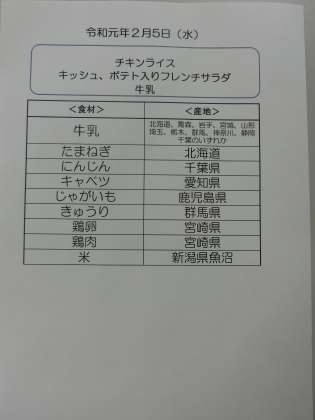 令和元年2月5日（水）
チキンライス
キッシュ、ポテト入りフレンチサラダ
牛乳
＜食材＞ ＜産地＞
牛乳 北海道、青森、岩手、宮城、山形
埼玉、栃木、群馬、神奈川、静岡
千葉のいずれか
たまねぎ 北海道
にんじん 千葉県
キャベツ 愛知県
じゃがいも 鹿児島県
きゅうり 群馬県
鶏卵 宮崎県
鶏肉 宮崎県
米 新潟県魚沼